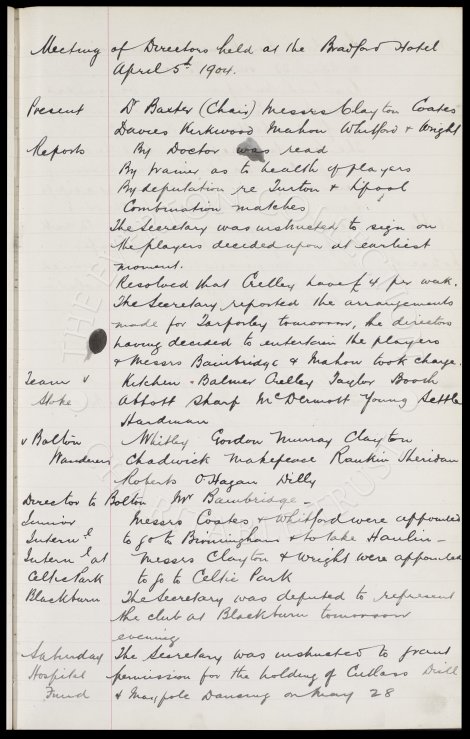 Meeting of Directors held at the Bradford Hotel
April 5th 1904.
Present Dr Baxter (Chair) Messrs Clayton Coates
Davies Kirkwood Mahon Whitford & Wright
Reports By Doctor was read
By Trainer as to health of players
By deputation re Turton & Lpool
Combination matches
The Secretary was instructed to sign on
the players decided upon at earliest
moment.
Resolved that Crelley have £4 per week.
The Secretary reported the arrangements
made for Tarporley tomorrow, the directors
having decided to entertain the players
& Messrs Bainbridge & Mahon took charge.
Team v Kitchen - Balmer Crelley Taylor Booth
Stoke Abbott Sharp McDermott Young Settle
Hardman
v Bolton Whitley Gordon Murray Clayton
Wanderers Chadwick Makepeace Rankin Sheridan
Roberts O'Hagan Dilly
Director to Bolton Mr Bainbridge -
Junior Messrs Coates & Whitford were appointed
Internl to go to Birmingham & to take Hanlin -
Internl at Messrs Clayton & Wright were appointed
Celtic Park to go to Celtic Park
Blackburn The Secretary was deputed to represent
the club at Blackburn tomorrow
evening
Saturday The Secretary was instructed to grant
Hospital permission for the holding of Cutlass Drill
Fund & Maypole Dancing on May 28